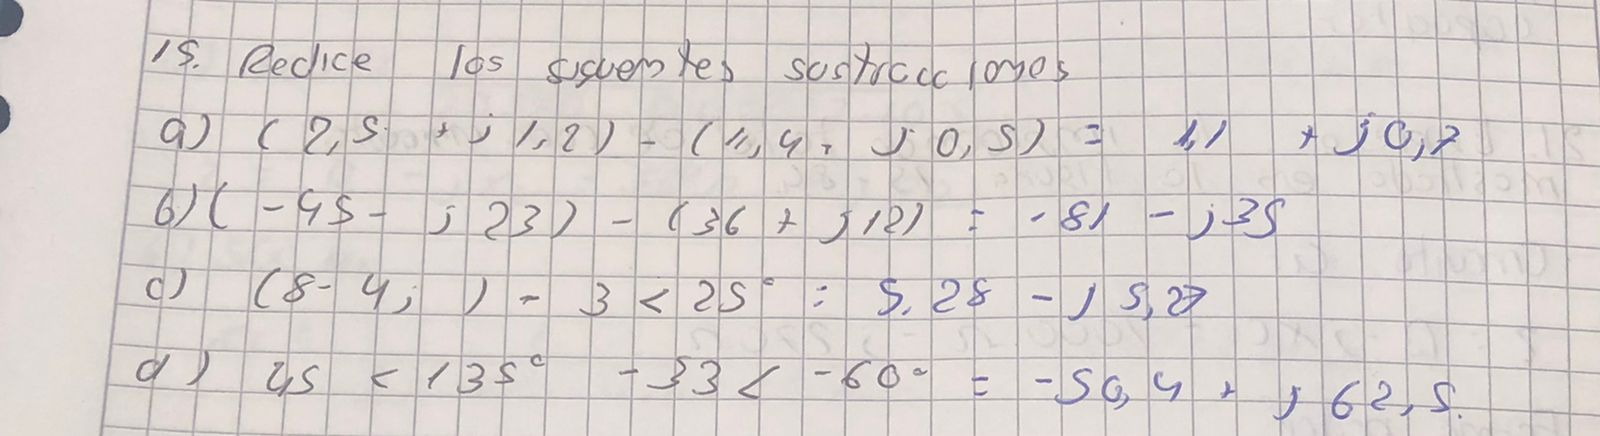 15. Redice los siguentes sustracciones
a) (2,5 + j 1,2) - (1,4 + j 0,5) = 1,1 + j 0,7
b) (-45 - j 23) - (36 + j 12) = -81 - j 35
c) (8 - 4j ) - 3 < 25° = 5.28 - j 5,27
d) 45 < 135° - 33 < -60° = -50,4 + j 62,5.